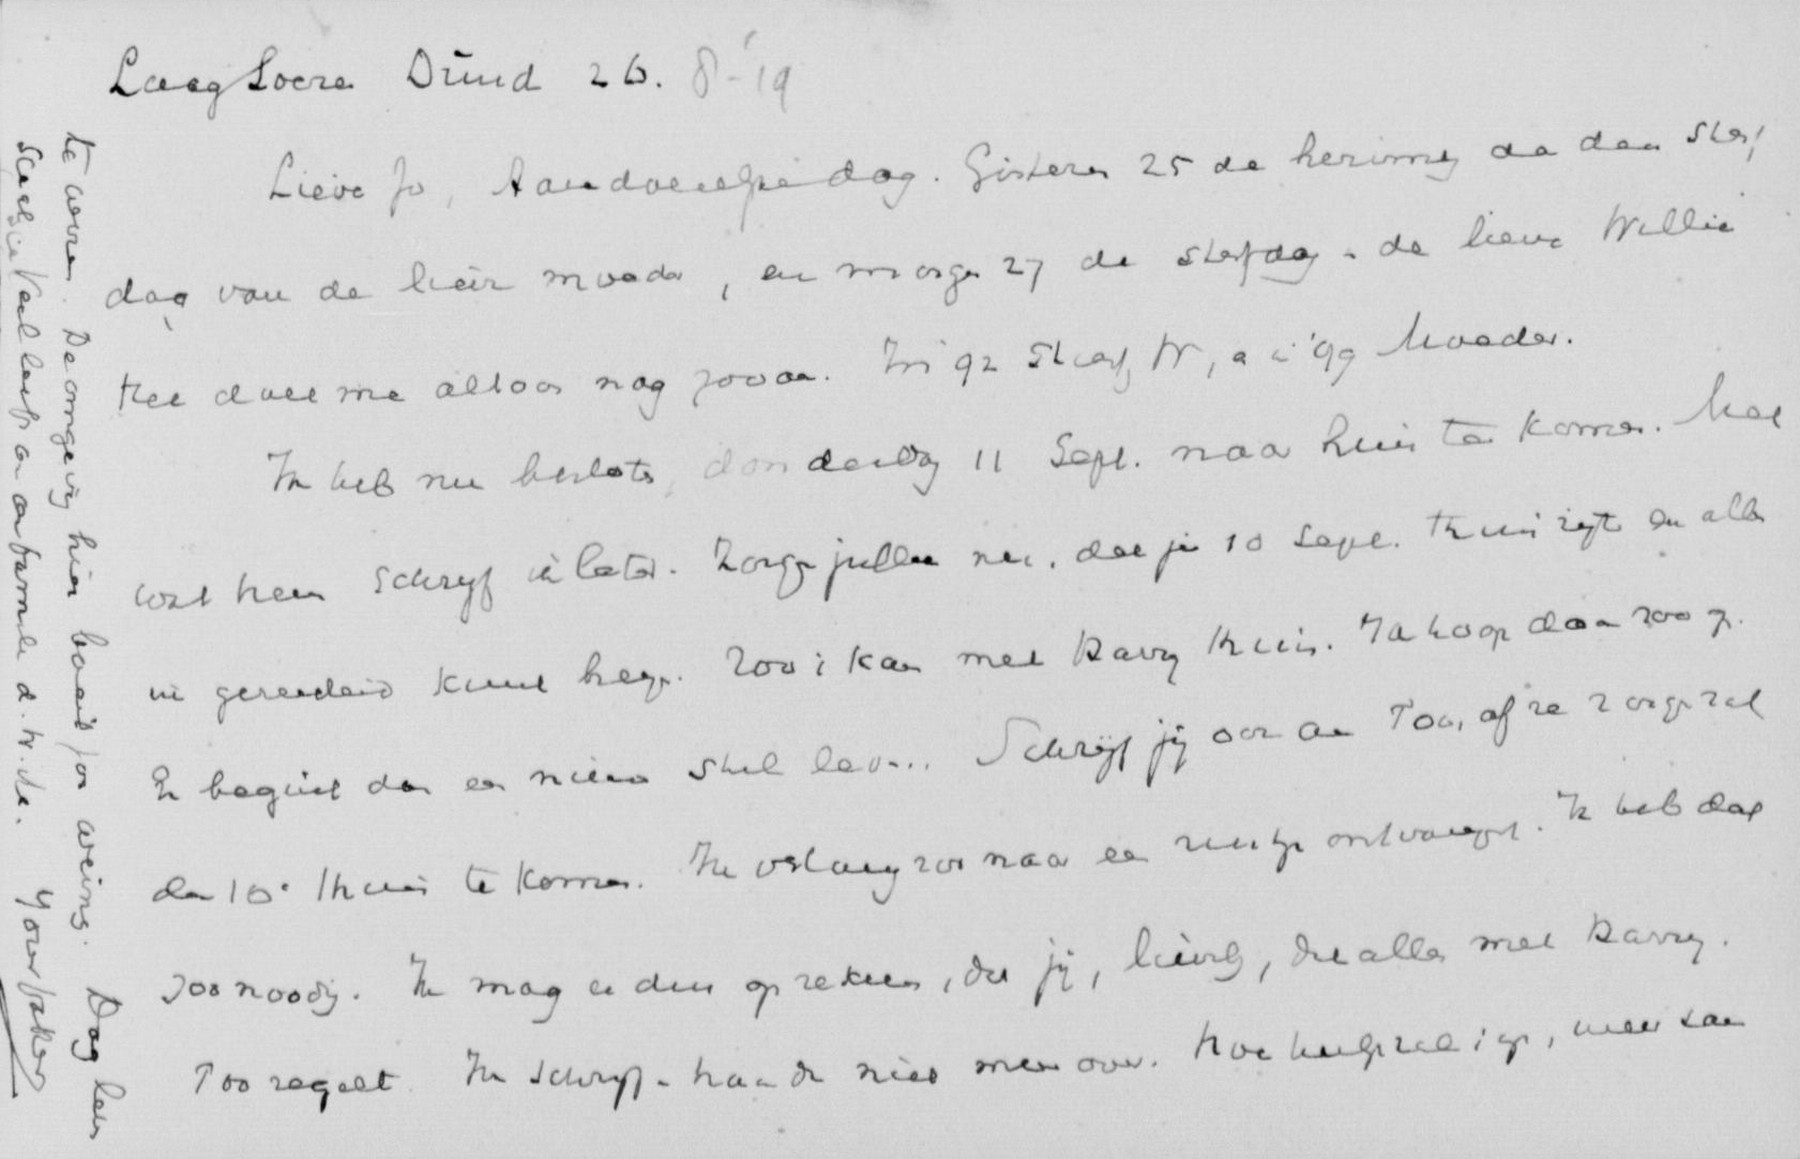 Laag Soeren Dinsd 26. 8-'19
Lieve Jo, Aandoenlijke dag. Gisteren 25 de herinnering aan den sterf
dag van de lieve moeder, en morgen 27 de sterfdag v. de lieve Willie
Het doet me altoos nog zoo aan. In 92 stierf W, en in '99 Moeder.
Ik heb nu besloten, donderdag 11 Sept. naar huis te komen. Met
wat trein schrijf ik later. Zorgen jullie nu, dat je 10 Sept. thuis zijt en alles
in gereedheid kunt brengen. Zoo i kom met Harry thuis. Ik hoop dan zoo
Er begint dan een nieuw stil leven... Schrijf jij ook aan Too, of ze zorgen zal
den 10e thuis te komen. Ik verlang zoo naar een rustige ontvangst. Ik heb dat
zoo noodig. Ik mag er dus op rekenen, dat jij, lieveling, dit alles met Harry.
Too regelt. Ik schrijf haar er niet meer over. Hoe heerlijk zal i zijn, weer saam
te wonen. De omgeving hier boeit per weing. Dag lieve
schat Veel liefs en omarming d. h. de. Your father